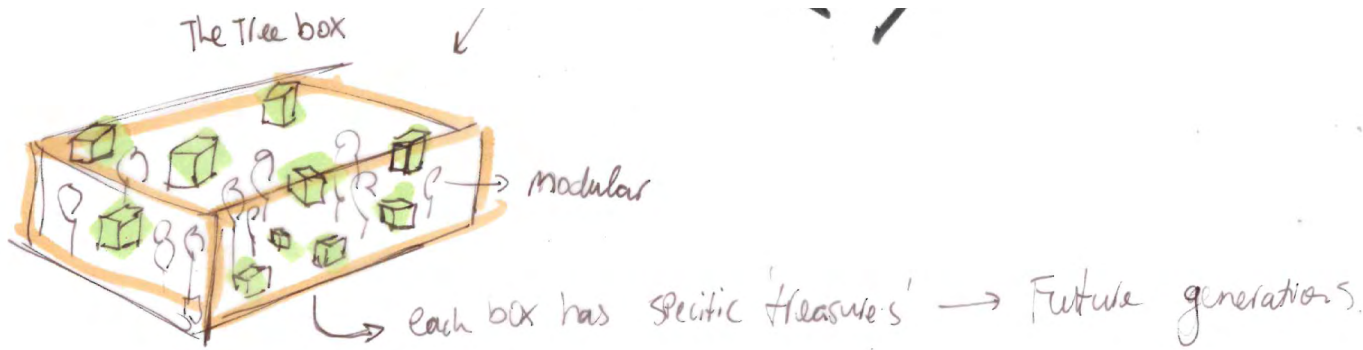 The Tree box
modular
each box has specific 'treasures' → Future generations.